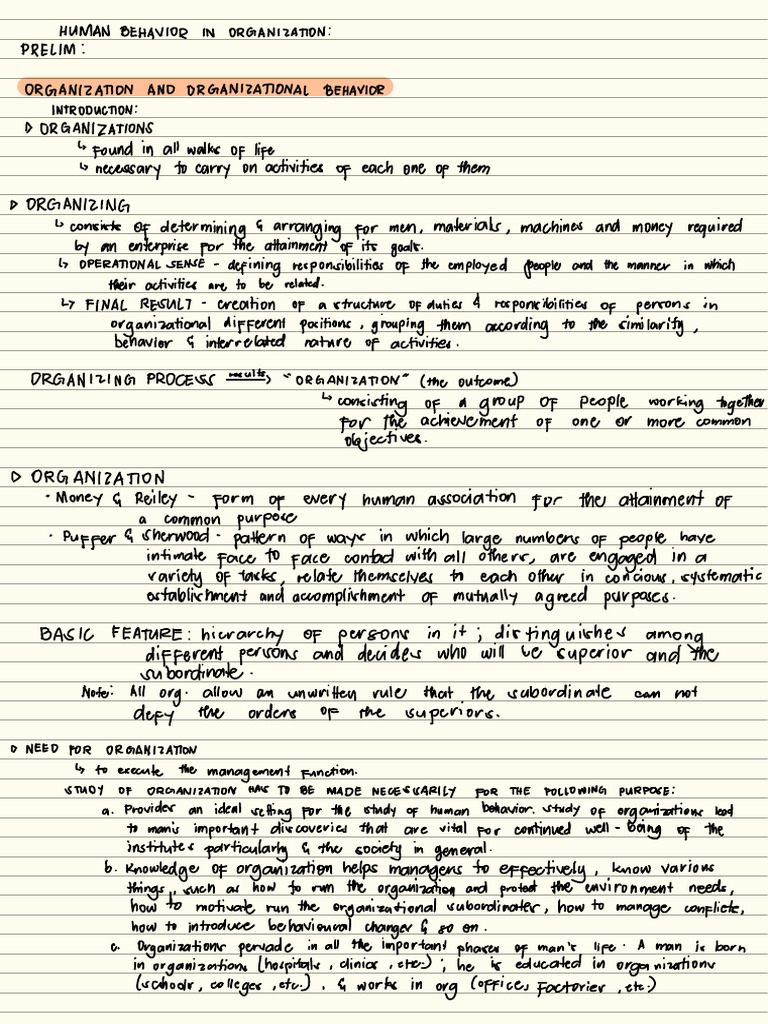 HUMAN BEHAVIOR IN ORGANIZATION:
PRELIM:
ORGANIZATION AND ORGANIZATIONAL BEHAVIOR
INTRODUCTION:
▷ ORGANIZATIONS
↳ found in all walks of life
↳ necessary to carry on activities of each one of them
▷ ORGANIZING
↳ consists of determining & arranging for men, materials, machines and money required
by an enterprise for the attainment of its goals.
↳ OPERATIONAL SENSE - defining responsibilities of the employed people and the manner in which
their activities are to be related.
↳ FINAL RESULT - creation of a structure of duties & responsibilities of persons in
organizational different positions, grouping them according to the similarity,
behavior & interrelated nature of activities.
ORGANIZING PROCESS results→ "ORGANIZATION" (the outcome)
↳ consisting of a group of people working together
for the achievement of one or more common
objectives.
▷ ORGANIZATION
· Money & Reiley - form of every human association for the attainment of
a common purpose
· Puffer & sherwood - pattern of ways in which large numbers of people have
intimate face to face contact with all others, are engaged in a
variety of tasks, relate themselves to each other in concious, systematic
establishment and accomplishment of mutually agreed purposes.
BASIC FEATURE: hierarchy of persons in it; distinguishes among
different persons and decides who will be superior and the
subordinate.
Note: All org. allow an unwritten rule that the subordinate can not
defy the orders of the superiors.
▷ NEED FOR ORGANIZATION
↳ to execute the management function.
STUDY OF ORGANIZATION HAS TO BE MADE NECESSARILY FOR THE FOLLOWING PURPOSE:
a. Provides an ideal setting for the study of human behavior. study of organizations lead
to man's important discoveries that are vital for continued well-being of the
institutes particularly & the society in general.
b. Knowledge of organization helps managers to effectively, know various
things, such as how to run the organization and protect the environment needs,
how to motivate run the organizational subordinates, how to manage conflicts,
how to introduce behavioural changes & so on.
c. Organizations pervade in all the important phases of man's life. A man is born
in organizations (hospitals, clinics, etc.); he is educated in organizations
(schools, colleges, etc.), & works in org (offices, factories, etc)